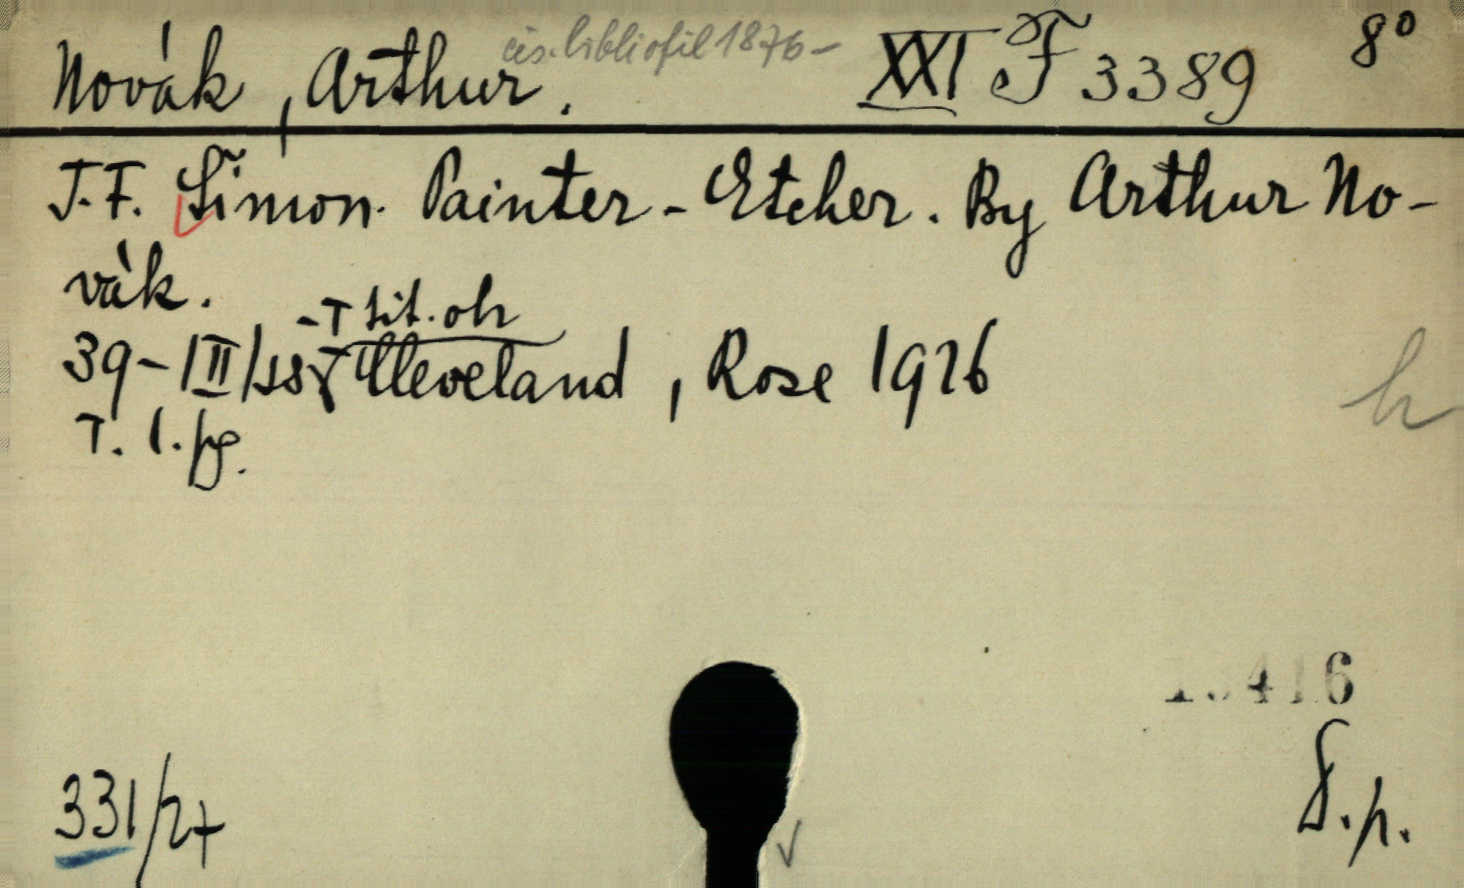 Novák, Arthur. čes. bibliofil 1876- XXI F 3389 8°
T.F. Šimon. Painter-Etcher. By Arthur No-
vák.
-T tit. ob
39-III/ss Cleveland, Rose 1926
T. 1. fg.
h
6
331/27
S.p.